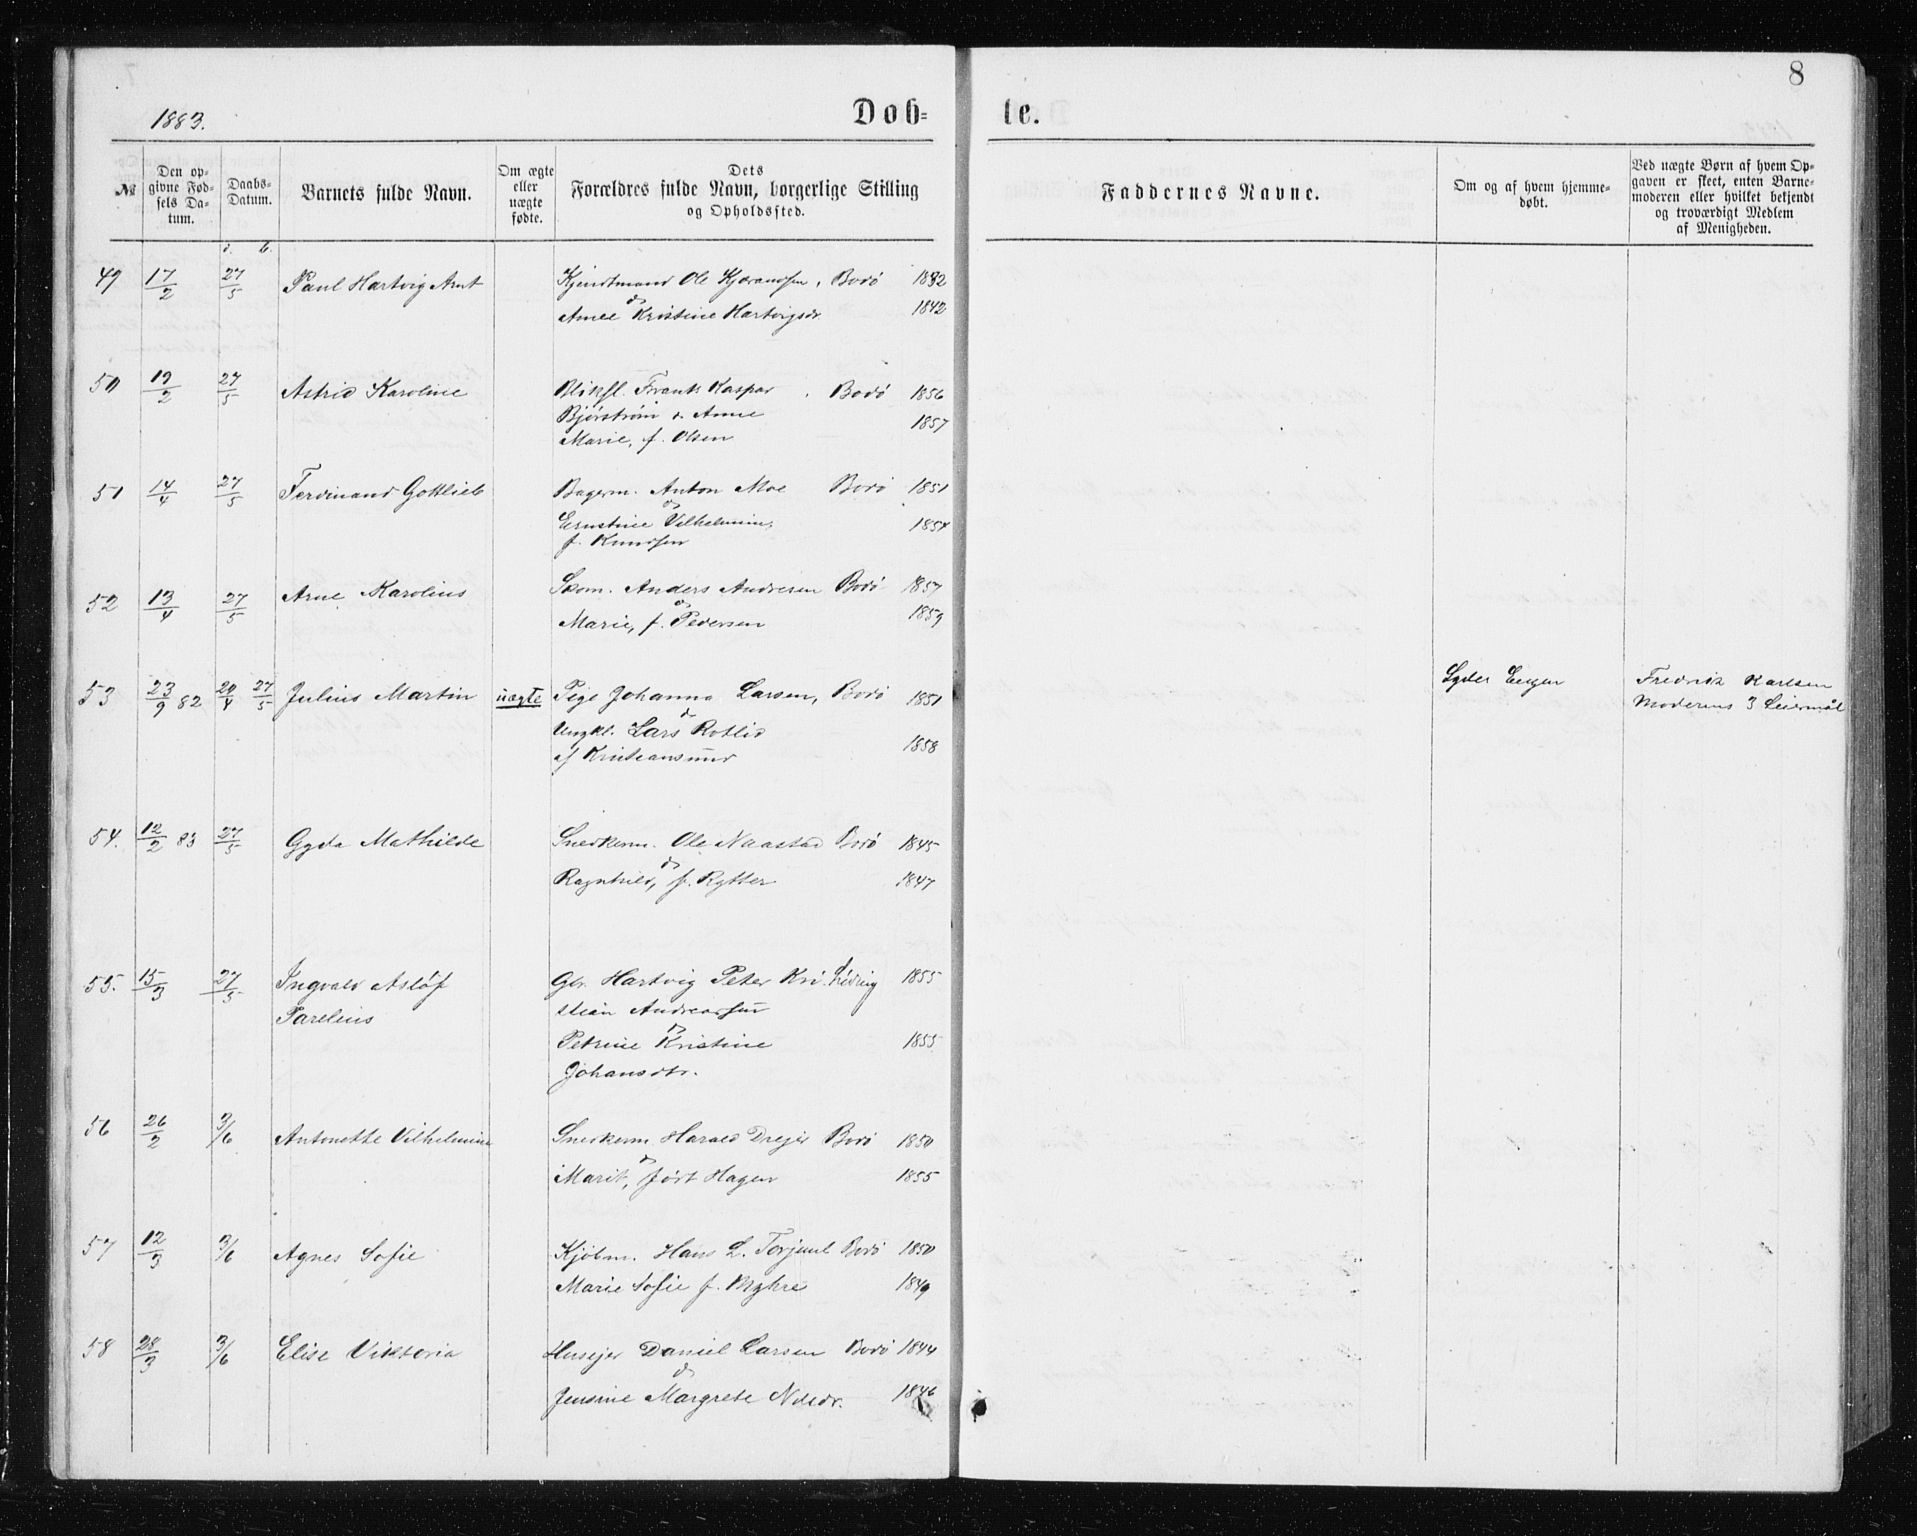 8
1883.
Døb-
te.
№
Den op-
givne Fød-
sels Da-
tum.
Daabs-
Datum.
Barnets fulde Navn.
Om ægte
eller
uægte
fødte.
Dets
Forældres fulde Navn, borgerlige Stilling
og Opholdssted.
Faddernes Navne.
Om og af hvem hjemme-
døbt.
Ved uægte Børn af hvem Op-
gaven er skeet, enten Barne-
moderen eller hvilket bekjendt
og troværdigt Medlem
af Menigheden.
49 17/2 27/5 Paul Hartvig Arnt Ole Bodø
Kristine Hartvigsdr. 1842
50 19/2 27/5 Astrid Karoline Frants Kaspar Bodø 1856
Bjørstrøm & Anne 1857
Marie, f. Olsen
51 14/4 27/5 Ferdinand Gottlieb Bagerm. Anton Moe Bodø 1851
& Ernstine Vilhelmine, 1854
f. Knudsen
52 13/4 27/5 Arne Karolius Skom. Anders Andresen Bodø 1857
& Marie, f. Pedersen 1859
53 23/9 82 20/4 27/5 Julius Martin uægte Pige Johanna Larsen, Bodø 1851
& Ungkl. Lars Rotlid 1858
af Kristiansund
Fredrik Karlsen
Moderens 3 Leiermål
54. 12/2 83 27/5 Gyda Mathilde Snedkerm. Ole Naastad Bodø 1845
& Ragnhild, f. Rytter 1847
55. 15/3 27/5 Ingvald Asløf Gbr. Hartvig Peter Kri- 1855
Parelius stian Andreassen
& Petrine Kristine 1855
Johansdtr.
56 26/2 3/6 Antonette Vilhelmine Snedkerm. Harald Drejer Bodø 1850
& Marit, født Hagen 1855
57 12/3 3/6 Agnes Sofie Kjøbm. Hans L. Torjuul Bodø 1850
Marie Sofie f. Myhre 1849
58 28/3 3/6 Elise Viktoria Husejer Daniel Larsen Bodø 1844
& Jensine Margrete Nilsdr. 1846